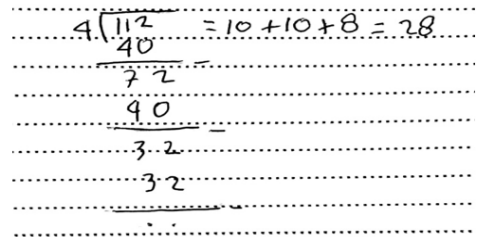 4√112 = 10 + 10 + 8 = 28
40
72
40
32
32
..